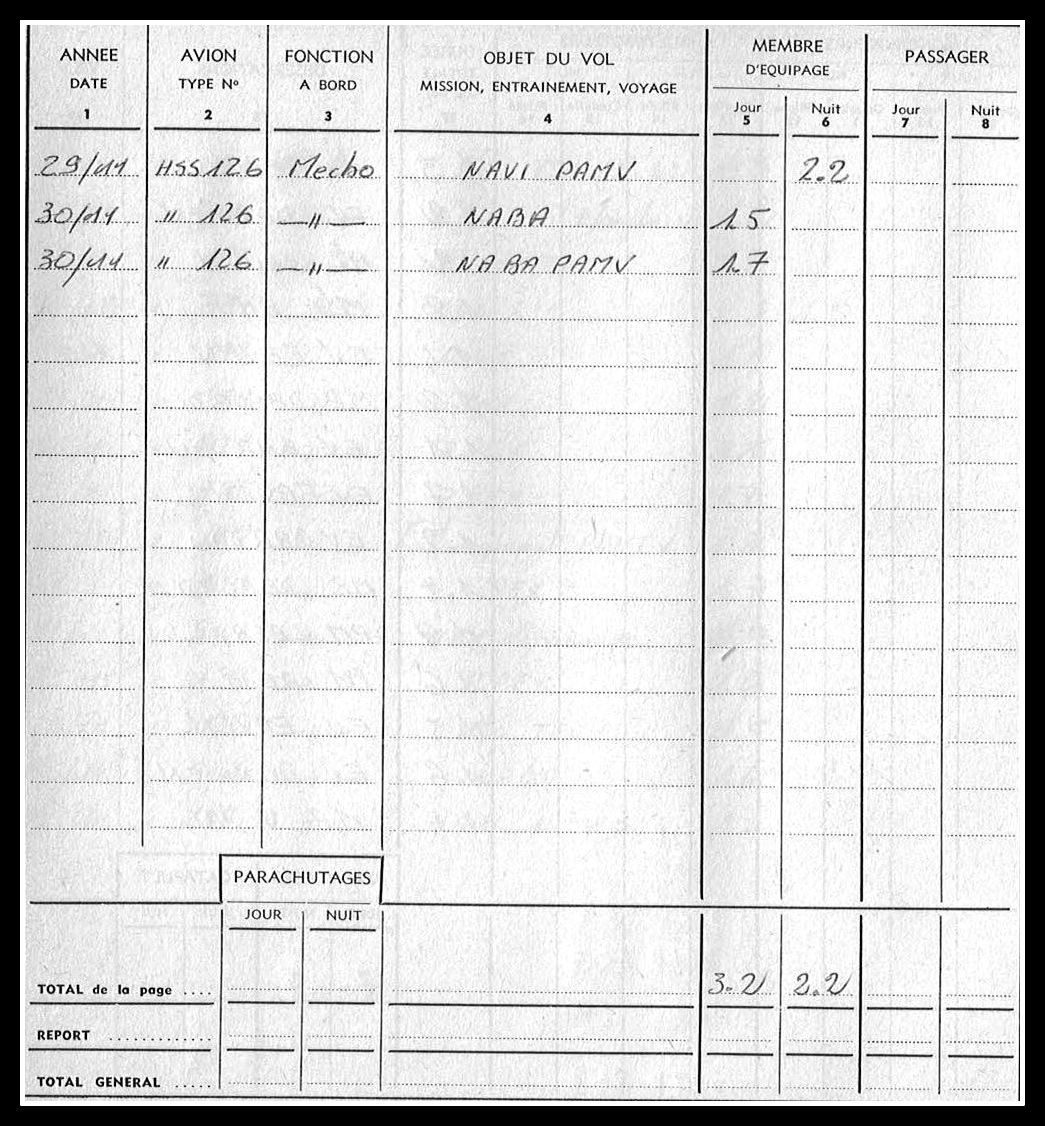 ANNEE AVION FONCTION OBJET DU VOL MEMBRE D'EQUIPAGE PASSAGER
DATE TYPE Nº A BORD MISSION, ENTRAINEMENT, VOYAGE Jour Nuit Jour Nuit
1 2 3 4 5 6 7 8
29/11 HSS 126 Mecbo NAVI PAMV 2.2
30/11 " 126 —"— NABA 1.5
30/11 " 126 —"— NABA PAMV 1.7
PARACHUTAGES
JOUR NUIT
TOTAL de la page .... 3.2 2.2
REPORT .............
TOTAL GENERAL .....